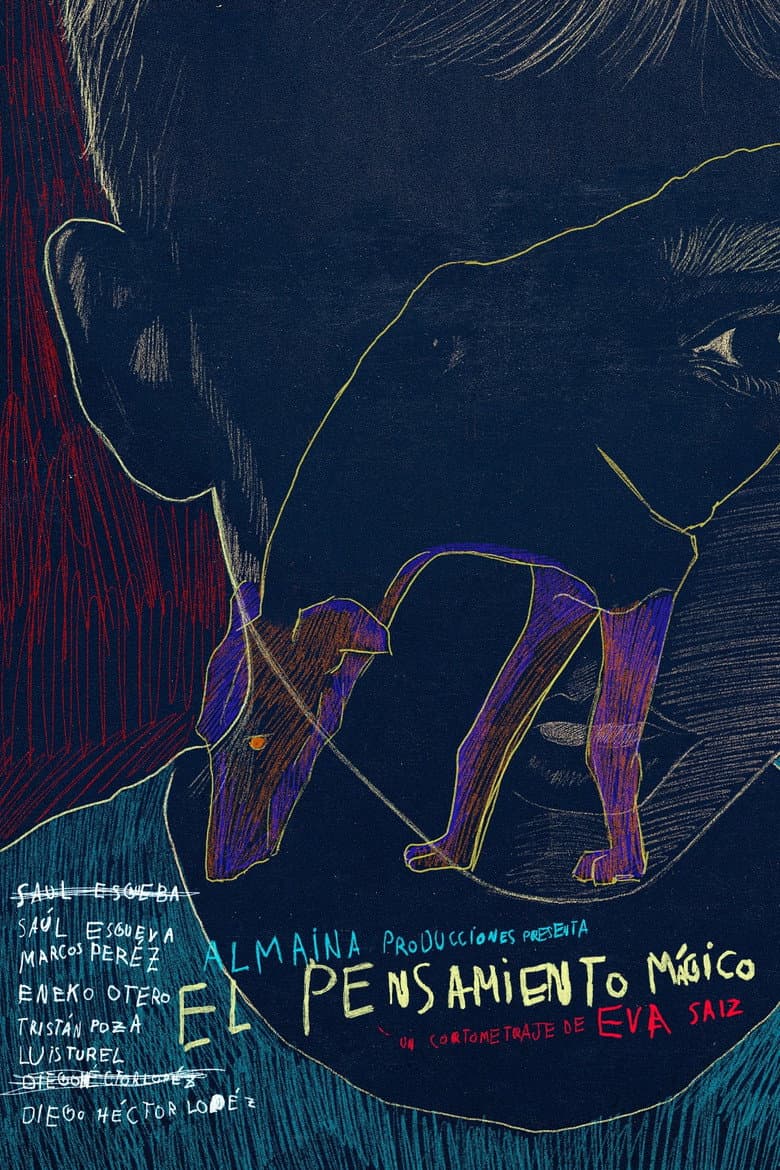 SAUL ESGUEBA
SAÚL ESGUEVA
MARCOS PERÉZ
ENEKO OTERO
TRISTÁN POZA
LUISTUREL
DIEGOHÉCTORLOPÉZ
DIEGO HÉCTOR LOPÉZ
ALMAINA PRODUCCIONES PRESENTA
EL PENSAMIENTO MÁGICO
UN CORTOMETRAJE DE EVA SAIZ